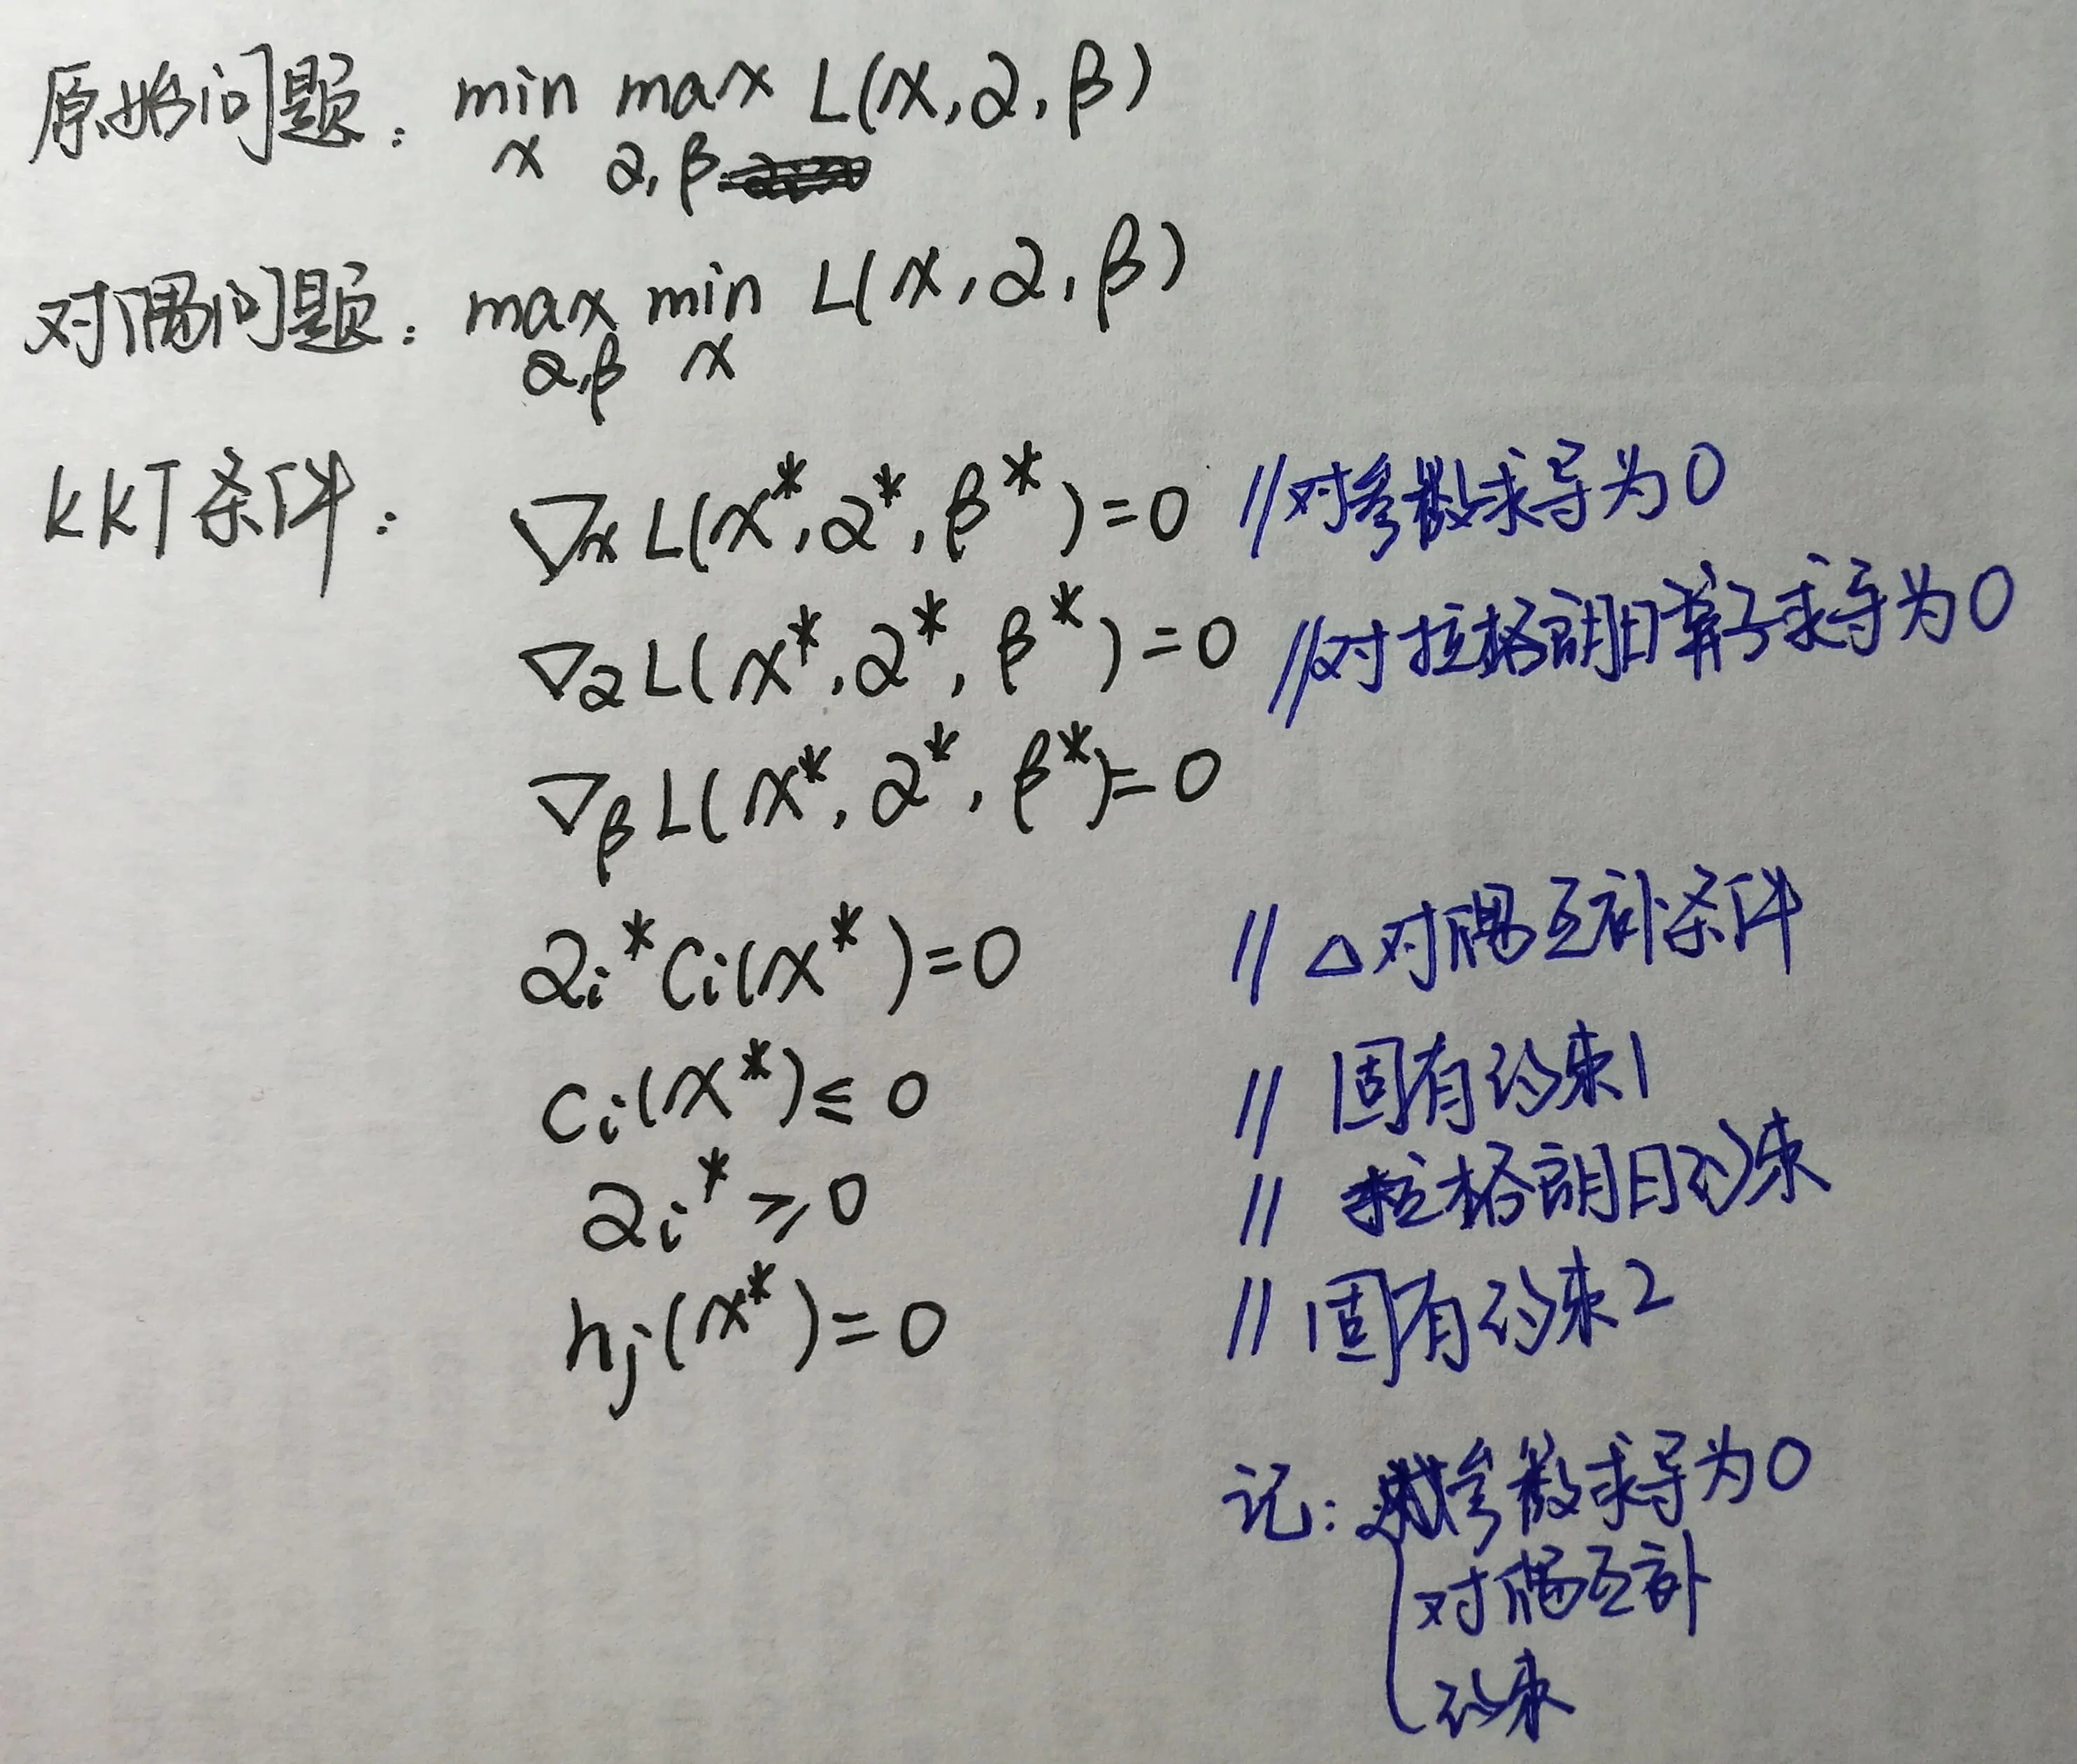 原始问题: min max L(x, α, β)
x α, β
对偶问题: max min L(x, α, β)
α,β x
KKT条件: ∇x L(x*, α*, β*)=0 //对参数求导为0
∇α L(x*, α*, β*)=0 //对拉格朗日算子求导为0
∇β L(x*, α*, β*)=0
αi* ci(x*)=0 // △对偶互补条件
ci(x*)≤0 // 固有约束1
αi*≥0 // 拉格朗日约束
hj(x*)=0 // 固有约束2
记: 对参数求导为0
对偶互补
约束